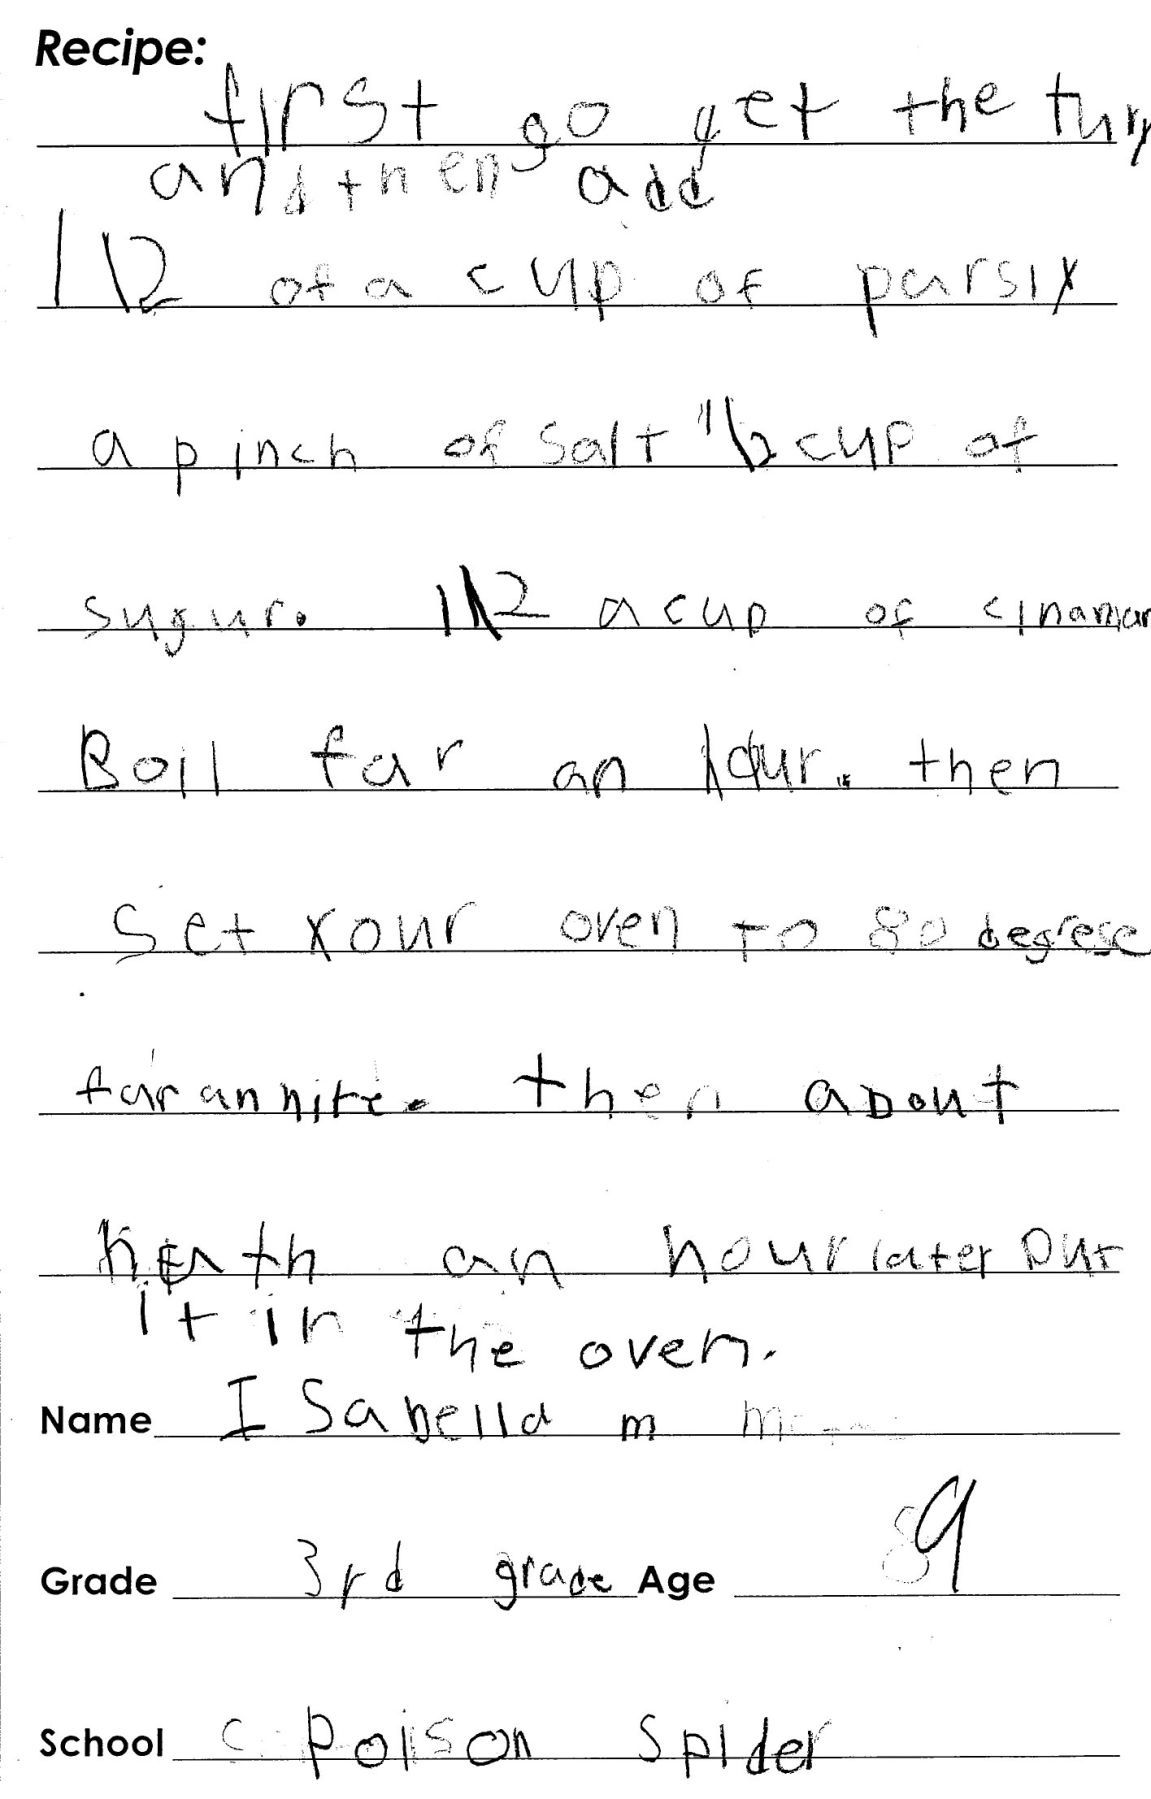 Recipe:
first go get the
and then add
1\2 of a cup of parsix
a pinch of salt 1\2 cup of
sugur. 1\2 a cup of cinaman
Boil far an hour. then
Set your oven to 80 degrese
farannite. then about
an hour later put
it in the oven.
Name ISabella m
Grade 3rd grade Age 9
School Poison Spider